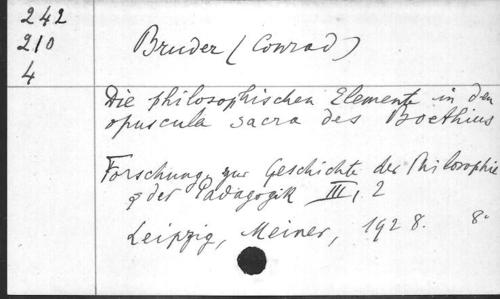 242
210
4
Bruder (Conrad)
Die philosophischen Elemente in den
opuscula sacra des Boethius
Forschung. zur Geschichte der Philosophie
der Pädagogik III, 2
Leipzig, Meiner, 1928. 8°